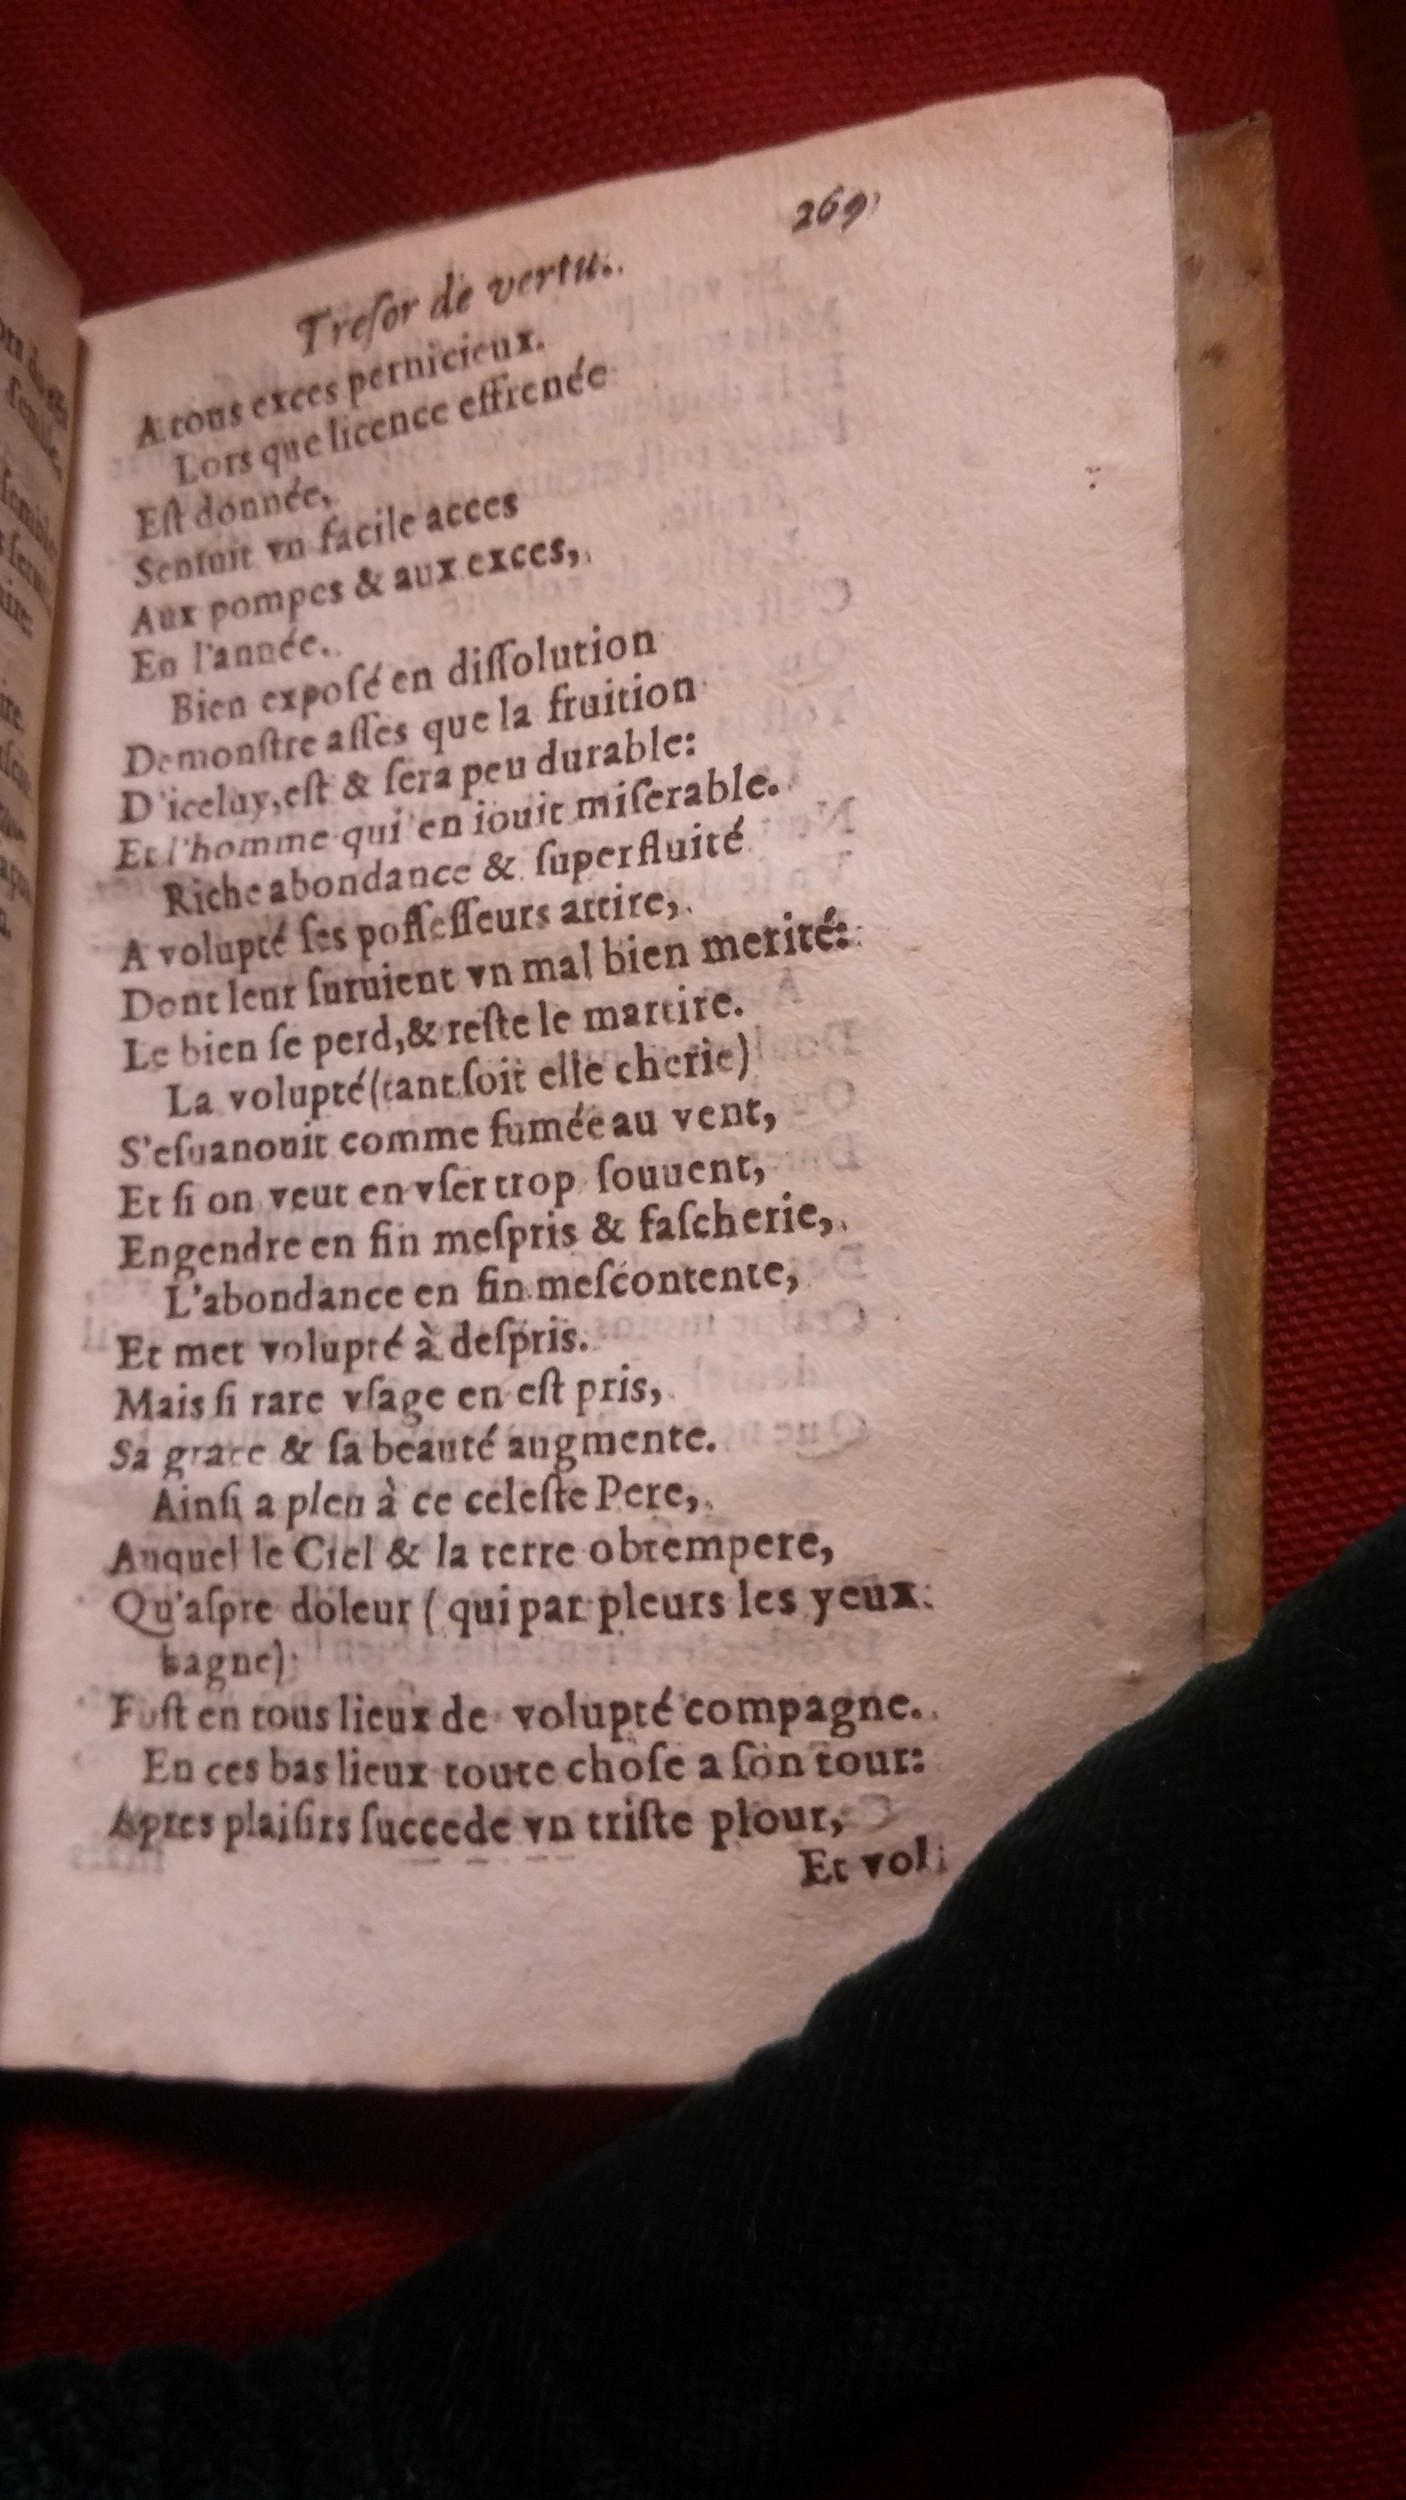 269
Treſor de vertu.
A tous exces pernicieux.
Lors que licence effrenée
Eſt donnée,
Senſuit vn facile acces
Aux pompes & aux exces,
En l'année.
Bien expoſé en diſſolution
Demonſtre aſſes que la fruition
D'iceluy, eſt & ſera peu durable:
Et l'homme qui en iouit miſerable.
Riche abondance & ſuperfluité
A volupté ſes poſſeſſeurs attire,
Dont leur ſuruient vn mal bien merité:
Le bien ſe perd, & reſte le martire.
La volupté (tant ſoit elle cherie)
S'eſuanouit comme fumée au vent,
Et ſi on veut en vſer trop ſouuent,
Engendre en fin meſpris & faſcherie,
L'abondance en fin meſcontente,
Et met volupté à deſpris.
Mais ſi rare vſage en eſt pris,
Sa grace & ſa beauté augmente.
Ainſi a pleu à ce celeſte Pere,
Auquel le Ciel & la terre obtempere,
Qu'aſpre doleur (qui par pleurs les yeux
bagne)
Fuſt en tous lieux de volupté compagne.
En ces bas lieux toute choſe a ſon tour:
Apres plaiſirs ſuccede vn triſte plour,
Et vol